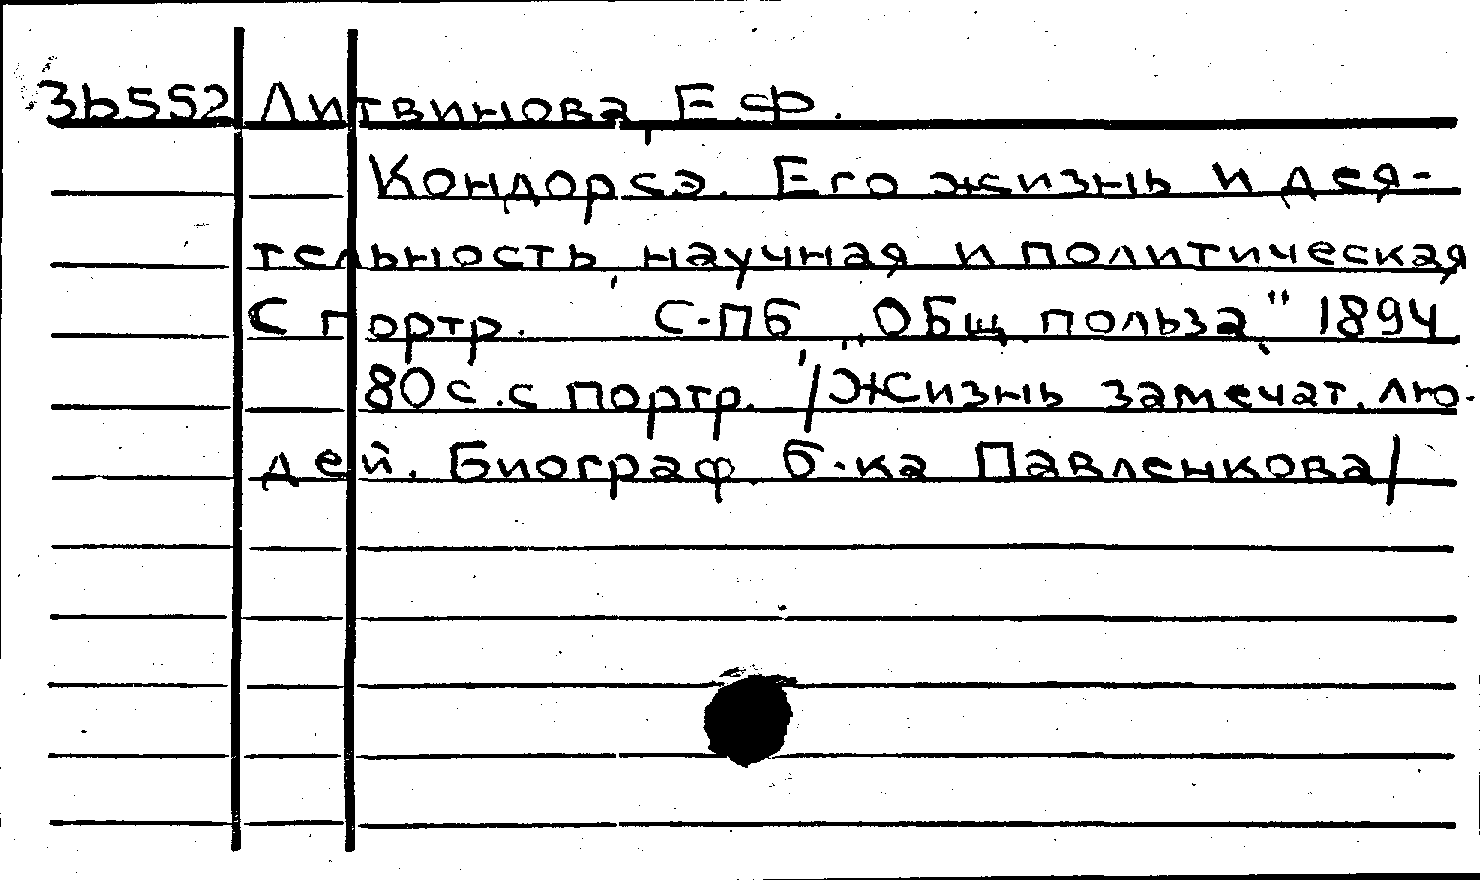 3b552 Литвинова, Е.Ф.
Кондорсэ. Его жизнь и дея-
тельность, научная и политическая
С портр. С-ПБ, „Общ. польза", 1894
80 с. с портр. /Жизнь замечат. лю-
дей. Биограф. б-ка Павленкова/